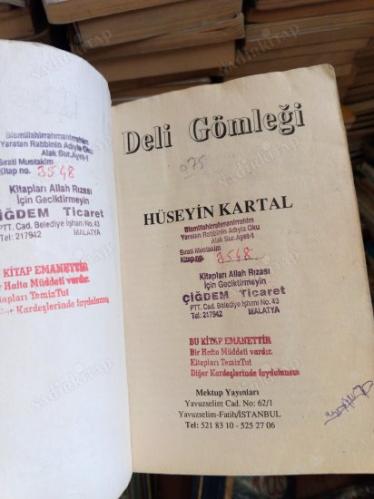 Bismillahirrahmanirrahim
Yaratan Rabbinin Adıyla Oku
Alak Sur. Ayet-1
Sırati Mustakim
Kitap no. 3548
Kitapları Allah Rızası
İçin Geciktirmeyin
ÇİĞDEM Ticaret
PTT. Cad. Belediye İşhanı No. 43
Tel: 217942 MALATYA
KİTAP EMANETTİR
Bir Hafta Müddeti vardır.
Kitapları Temiz Tut
Diğer Kardeşlerinde faydalansın
Deli Gömleği
075
HÜSEYİN KARTAL
Bismillahirrahmanirrahim
Yaratan Rabbinin Adıyla Oku
Alak Sur. Ayet-1
Sırati Mustakim
Kitap no. 3548
Kitapları Allah Rızası
İçin Geciktirmeyin
ÇİĞDEM Ticaret
PTT. Cad. Belediye İşhanı No. 43
Tel: 217942 MALATYA
BU KİTAP EMANETTİR
Bir Hafta Müddeti vardır.
Kitapları Temiz Tut
Diğer Kardeşlerinde faydalansın
Mektup Yayınları
Yavuzselim Cad. No: 62/1
Yavuzselim-Fatih/İSTANBUL
Tel: 521 83 10 - 525 27 06